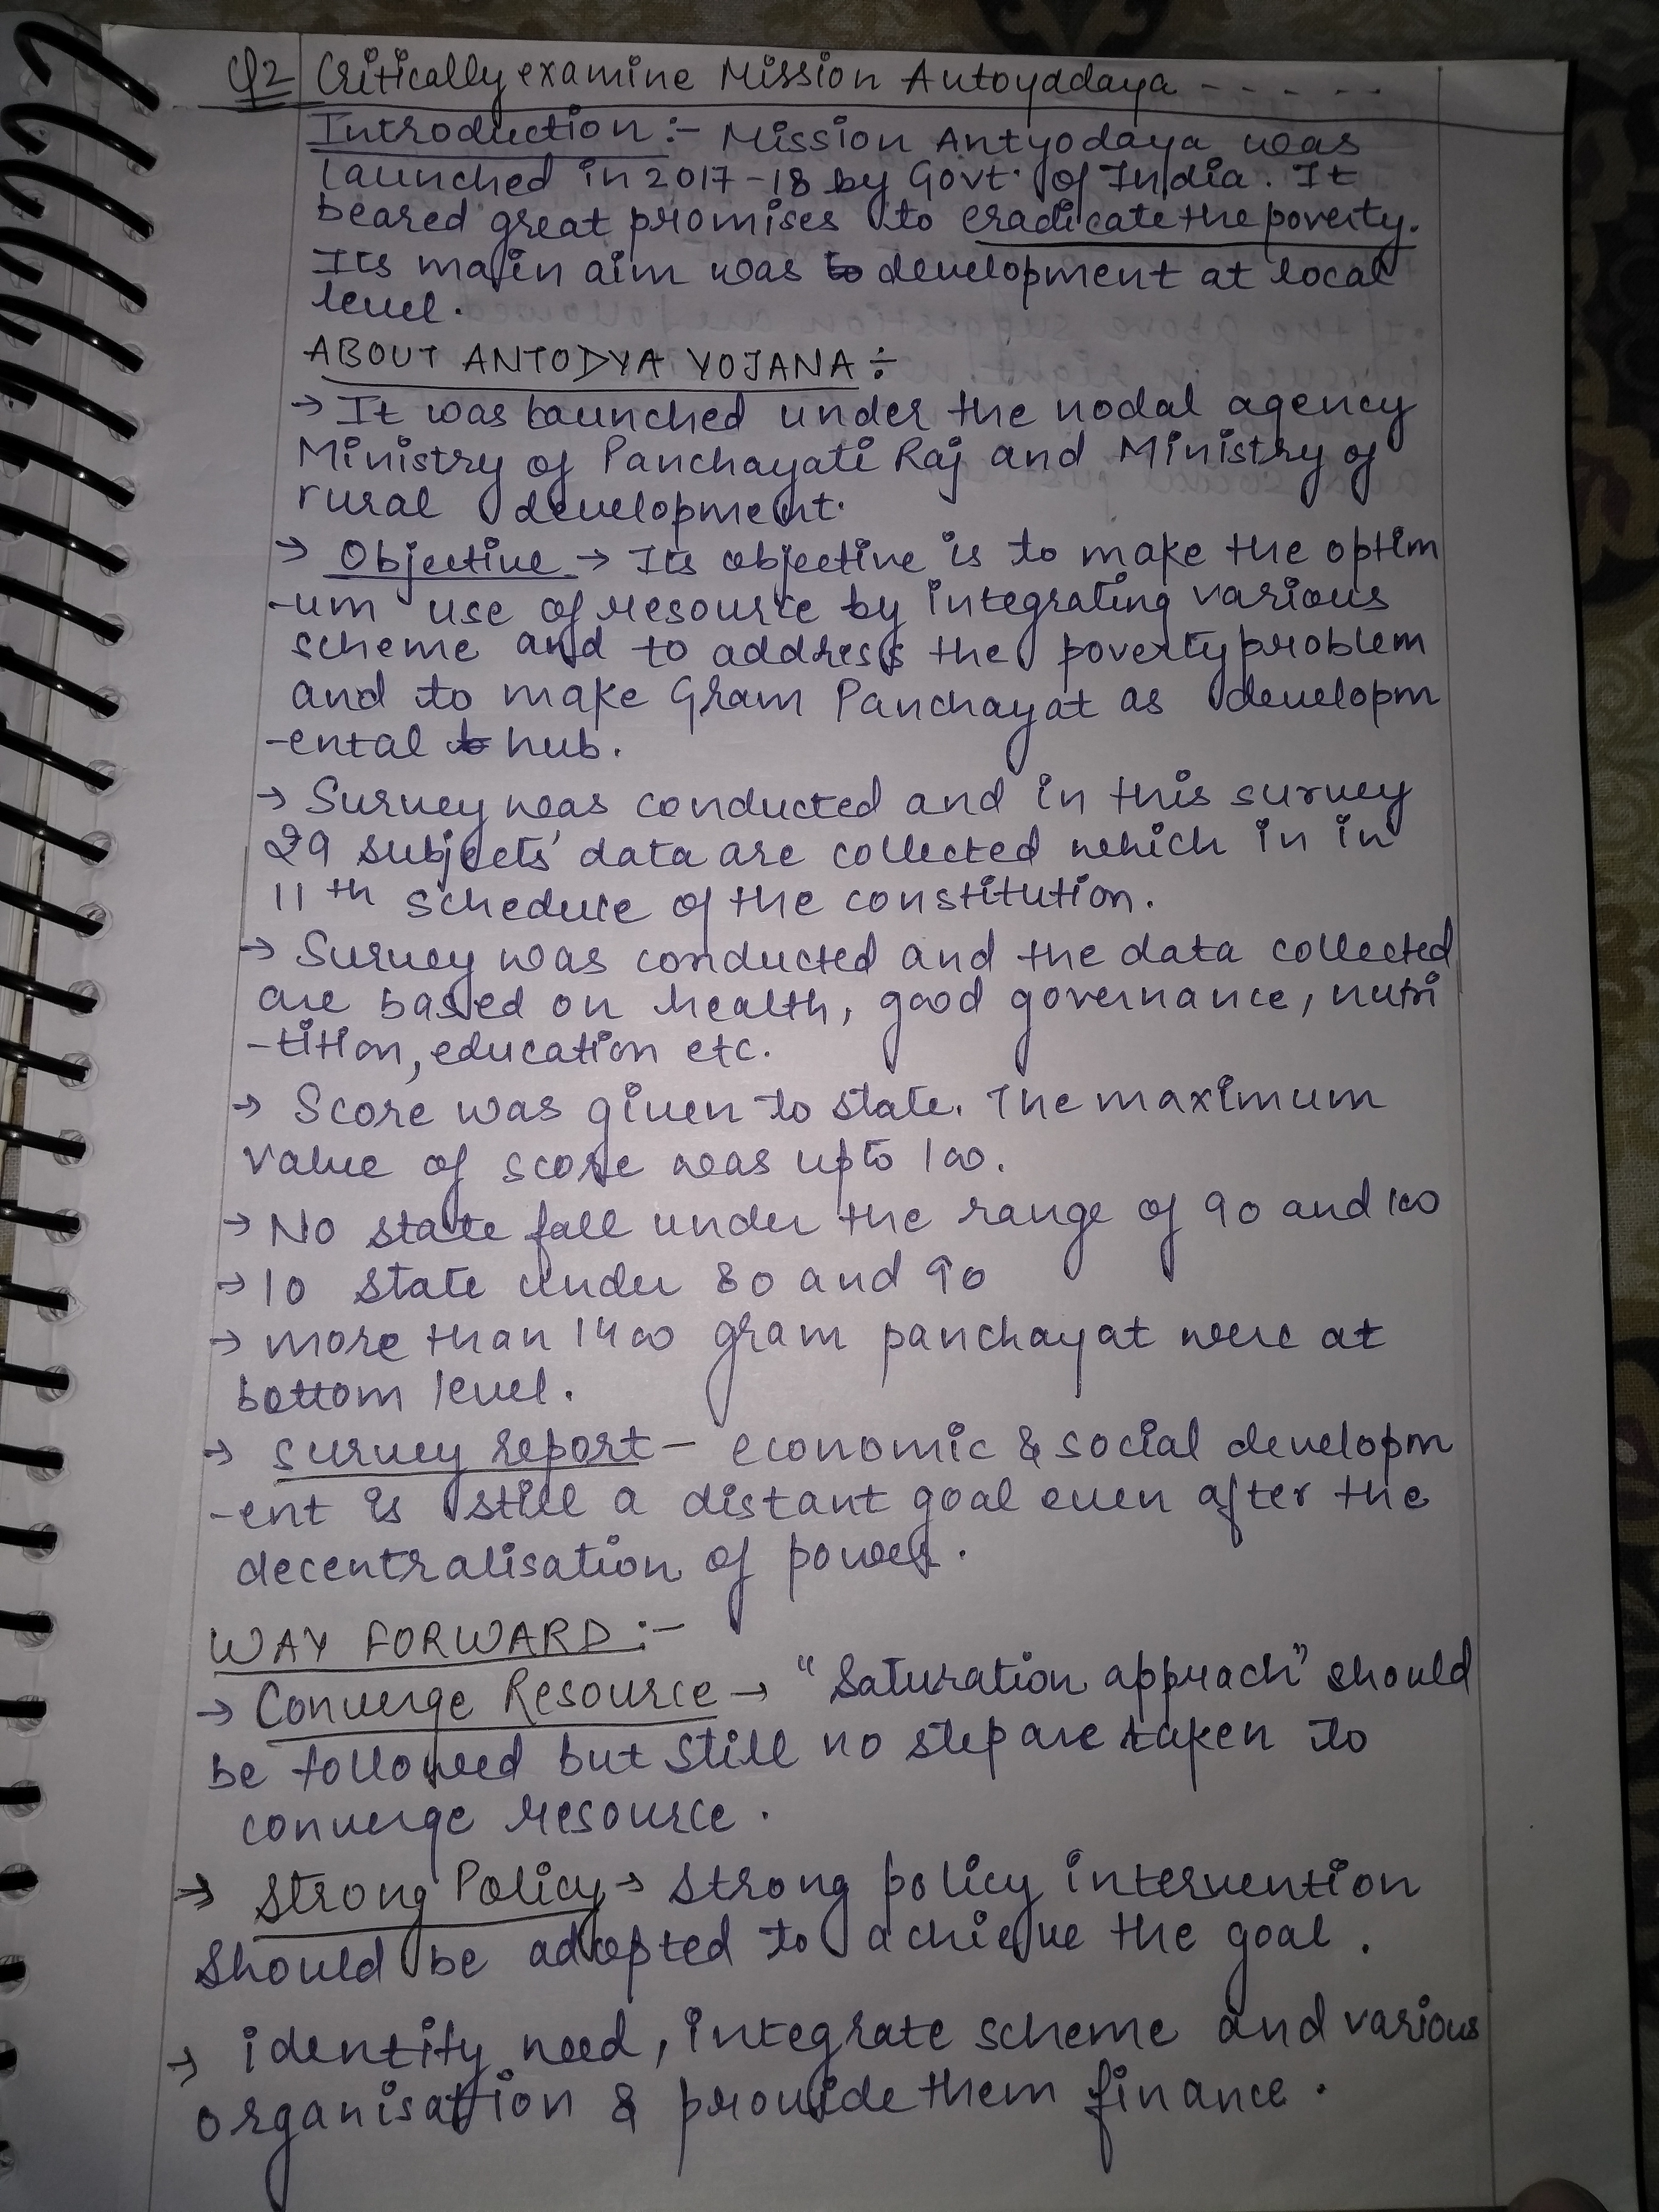 Q2 Critically examine Mission Antoyadaya - - - - - -
Introduction :- Mission Antyodaya was
launched in 2017-18 by Govt. of India. It
beared great promises to eradicate the poverty.
Its main aim was to development at local
level.
ABOUT ANTODYA YOJANA :-
→ It was launched under the nodal agency
Ministry of Panchayati Raj and Ministry of
rural development.
→ Objective → Its objective is to make the optim
-um use of resource by integrating various
scheme and to address the poverty problem
and to make Gram Panchayat as developm
-ental hub.
→ Survey was conducted and in this survey
29 subjects' data are collected which in in
11th schedule of the constitution.
→ Survey was conducted and the data collected
are based on health, good governance, nutri
-tition, education etc.
→ Score was given to state. The maximum
value of score was upto 100.
→ No state fall under the range of 90 and 100
→ 10 state under 80 and 90
→ more than 1400 gram panchayat were at
bottom level.
→ survey report - economic & social developm
-ent is still a distant goal even after the
decentralisation of power.
WAY FORWARD :-
→ Converge Resource → "Saturation apprach" should
be followed but still no step are taken to
converge resource.
→ Strong Policy → strong policy intervention
should be adopted to achieve the goal.
→ identify need, integrate scheme and various
organisation & provide them finance.